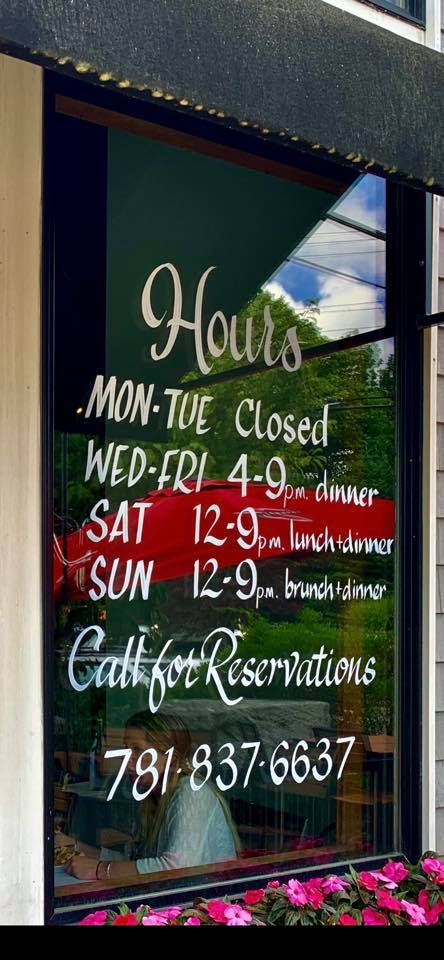 Hours
MON-TUE Closed
WED-FRI 4-9p.m. dinner
SAT 12-9p.m. lunch+dinner
SUN 12-9p.m. brunch+dinner
Call for Reservations
781-837-6637